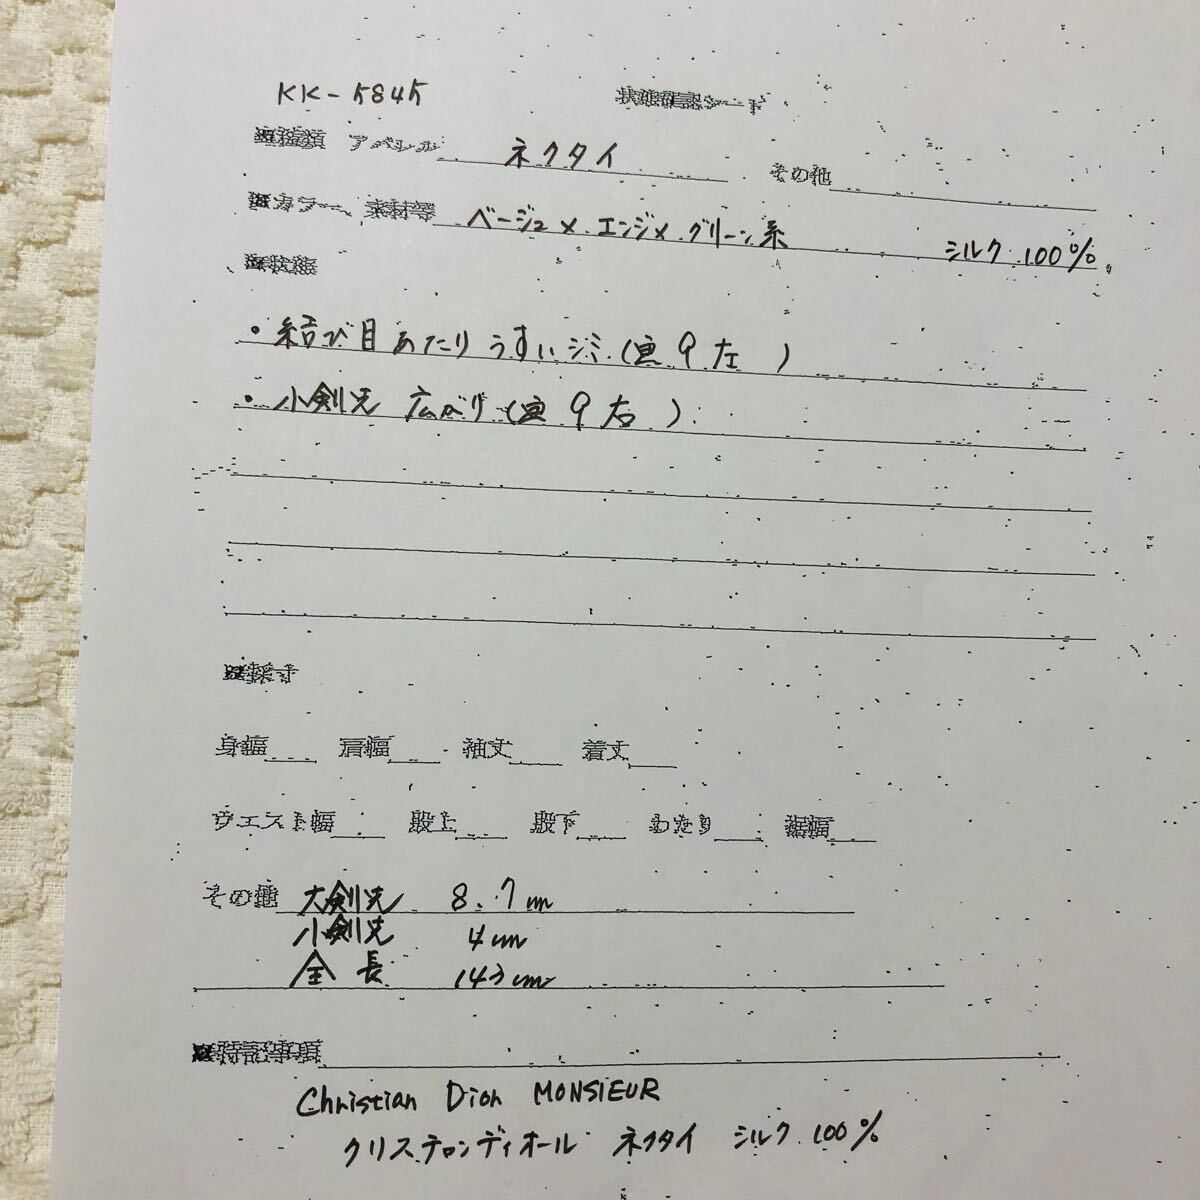 KK-5845
状態確認シート
■種類 アパレル ネクタイ その他
■カラー、素材等 ベージュ×エンジ×グリーン系 シルク 100%
■状態
・結び目あたり うすいシミ(画9左 )
・小剣先 広がり(画9右 )
■採寸
身幅 肩幅 袖丈 着丈
ウエスト幅 股上 股下 わたり 裾幅
その他 大剣先 8.7cm
小剣先 4cm
全長 143cm
■特記事項
Christian Dior MONSIEUR
クリスチャンディオール ネクタイ シルク 100%